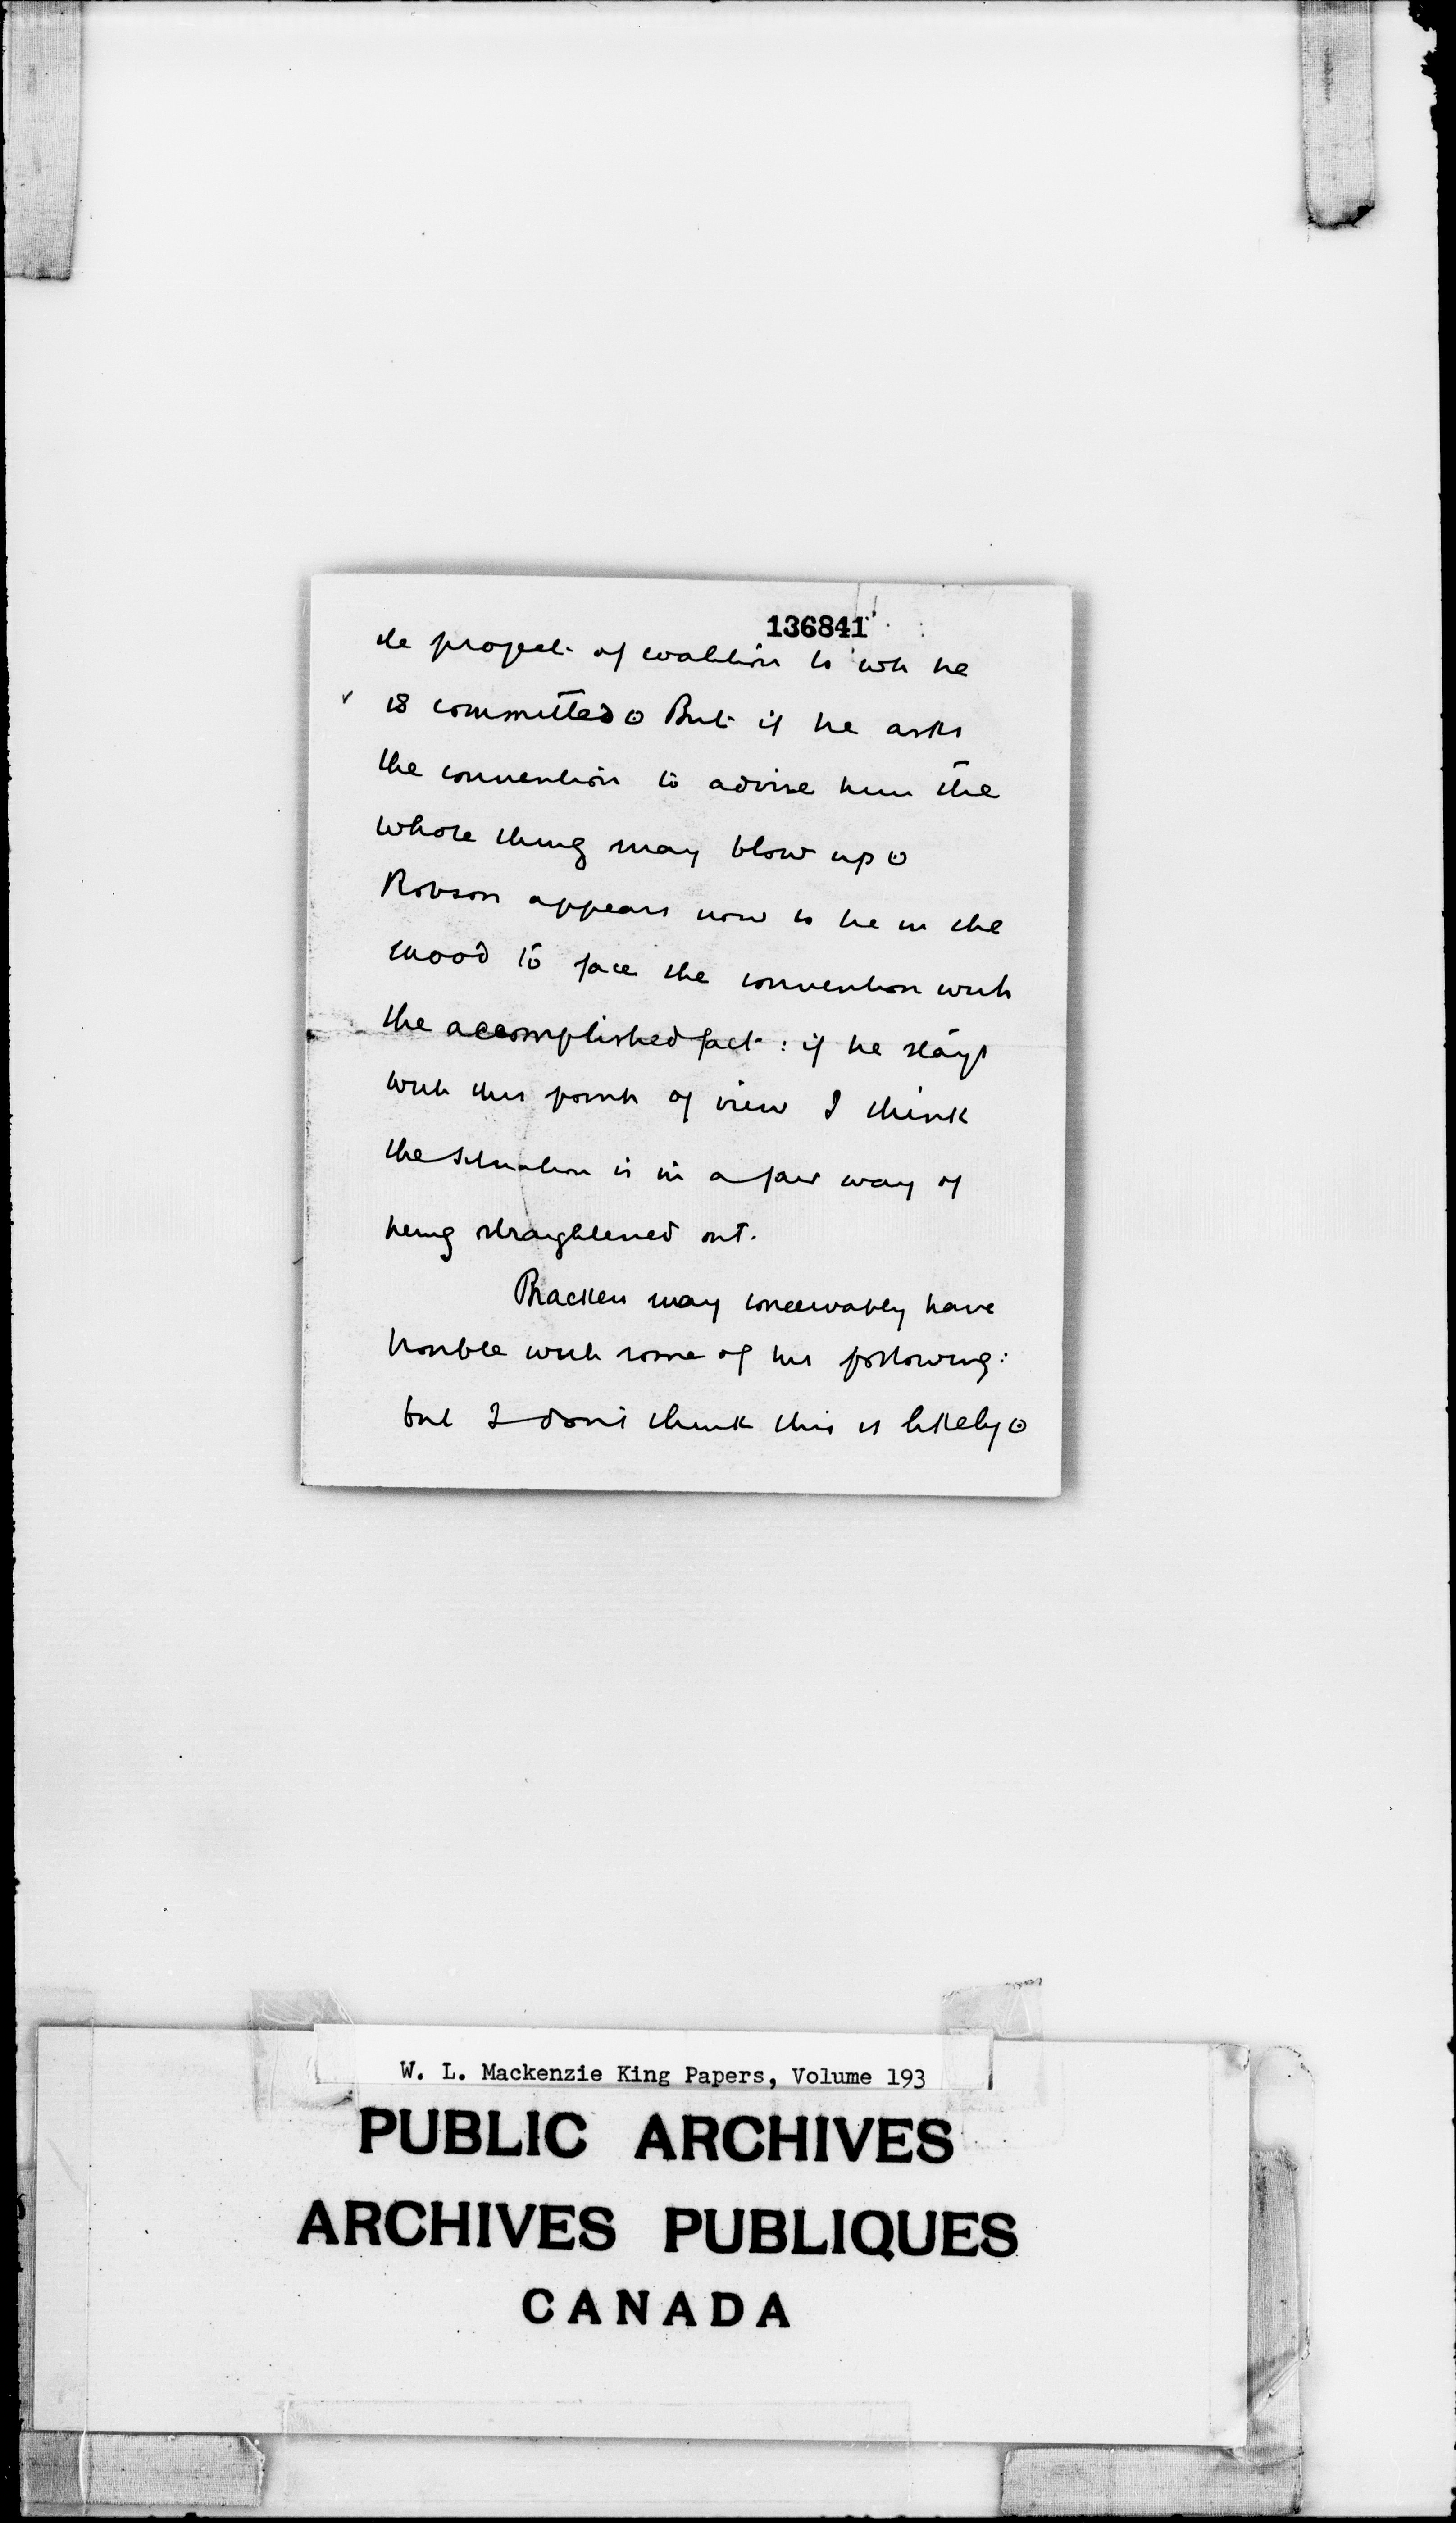 136841
the project of coalition to wh he
is committed. But if he asks
the convention to advise him the
whole thing may blow up.
Robson appears now to be in the
mood to face the convention with
the accomplished fact: if he stays
with this point of view I think
the situation is in a fair way of
being straightened out.
Bracken may conceivably have
trouble with some of his following:
but I don't think this is likely.
W. L. Mackenzie King Papers, Volume 193
PUBLIC ARCHIVES
ARCHIVES PUBLIQUES
CANADA